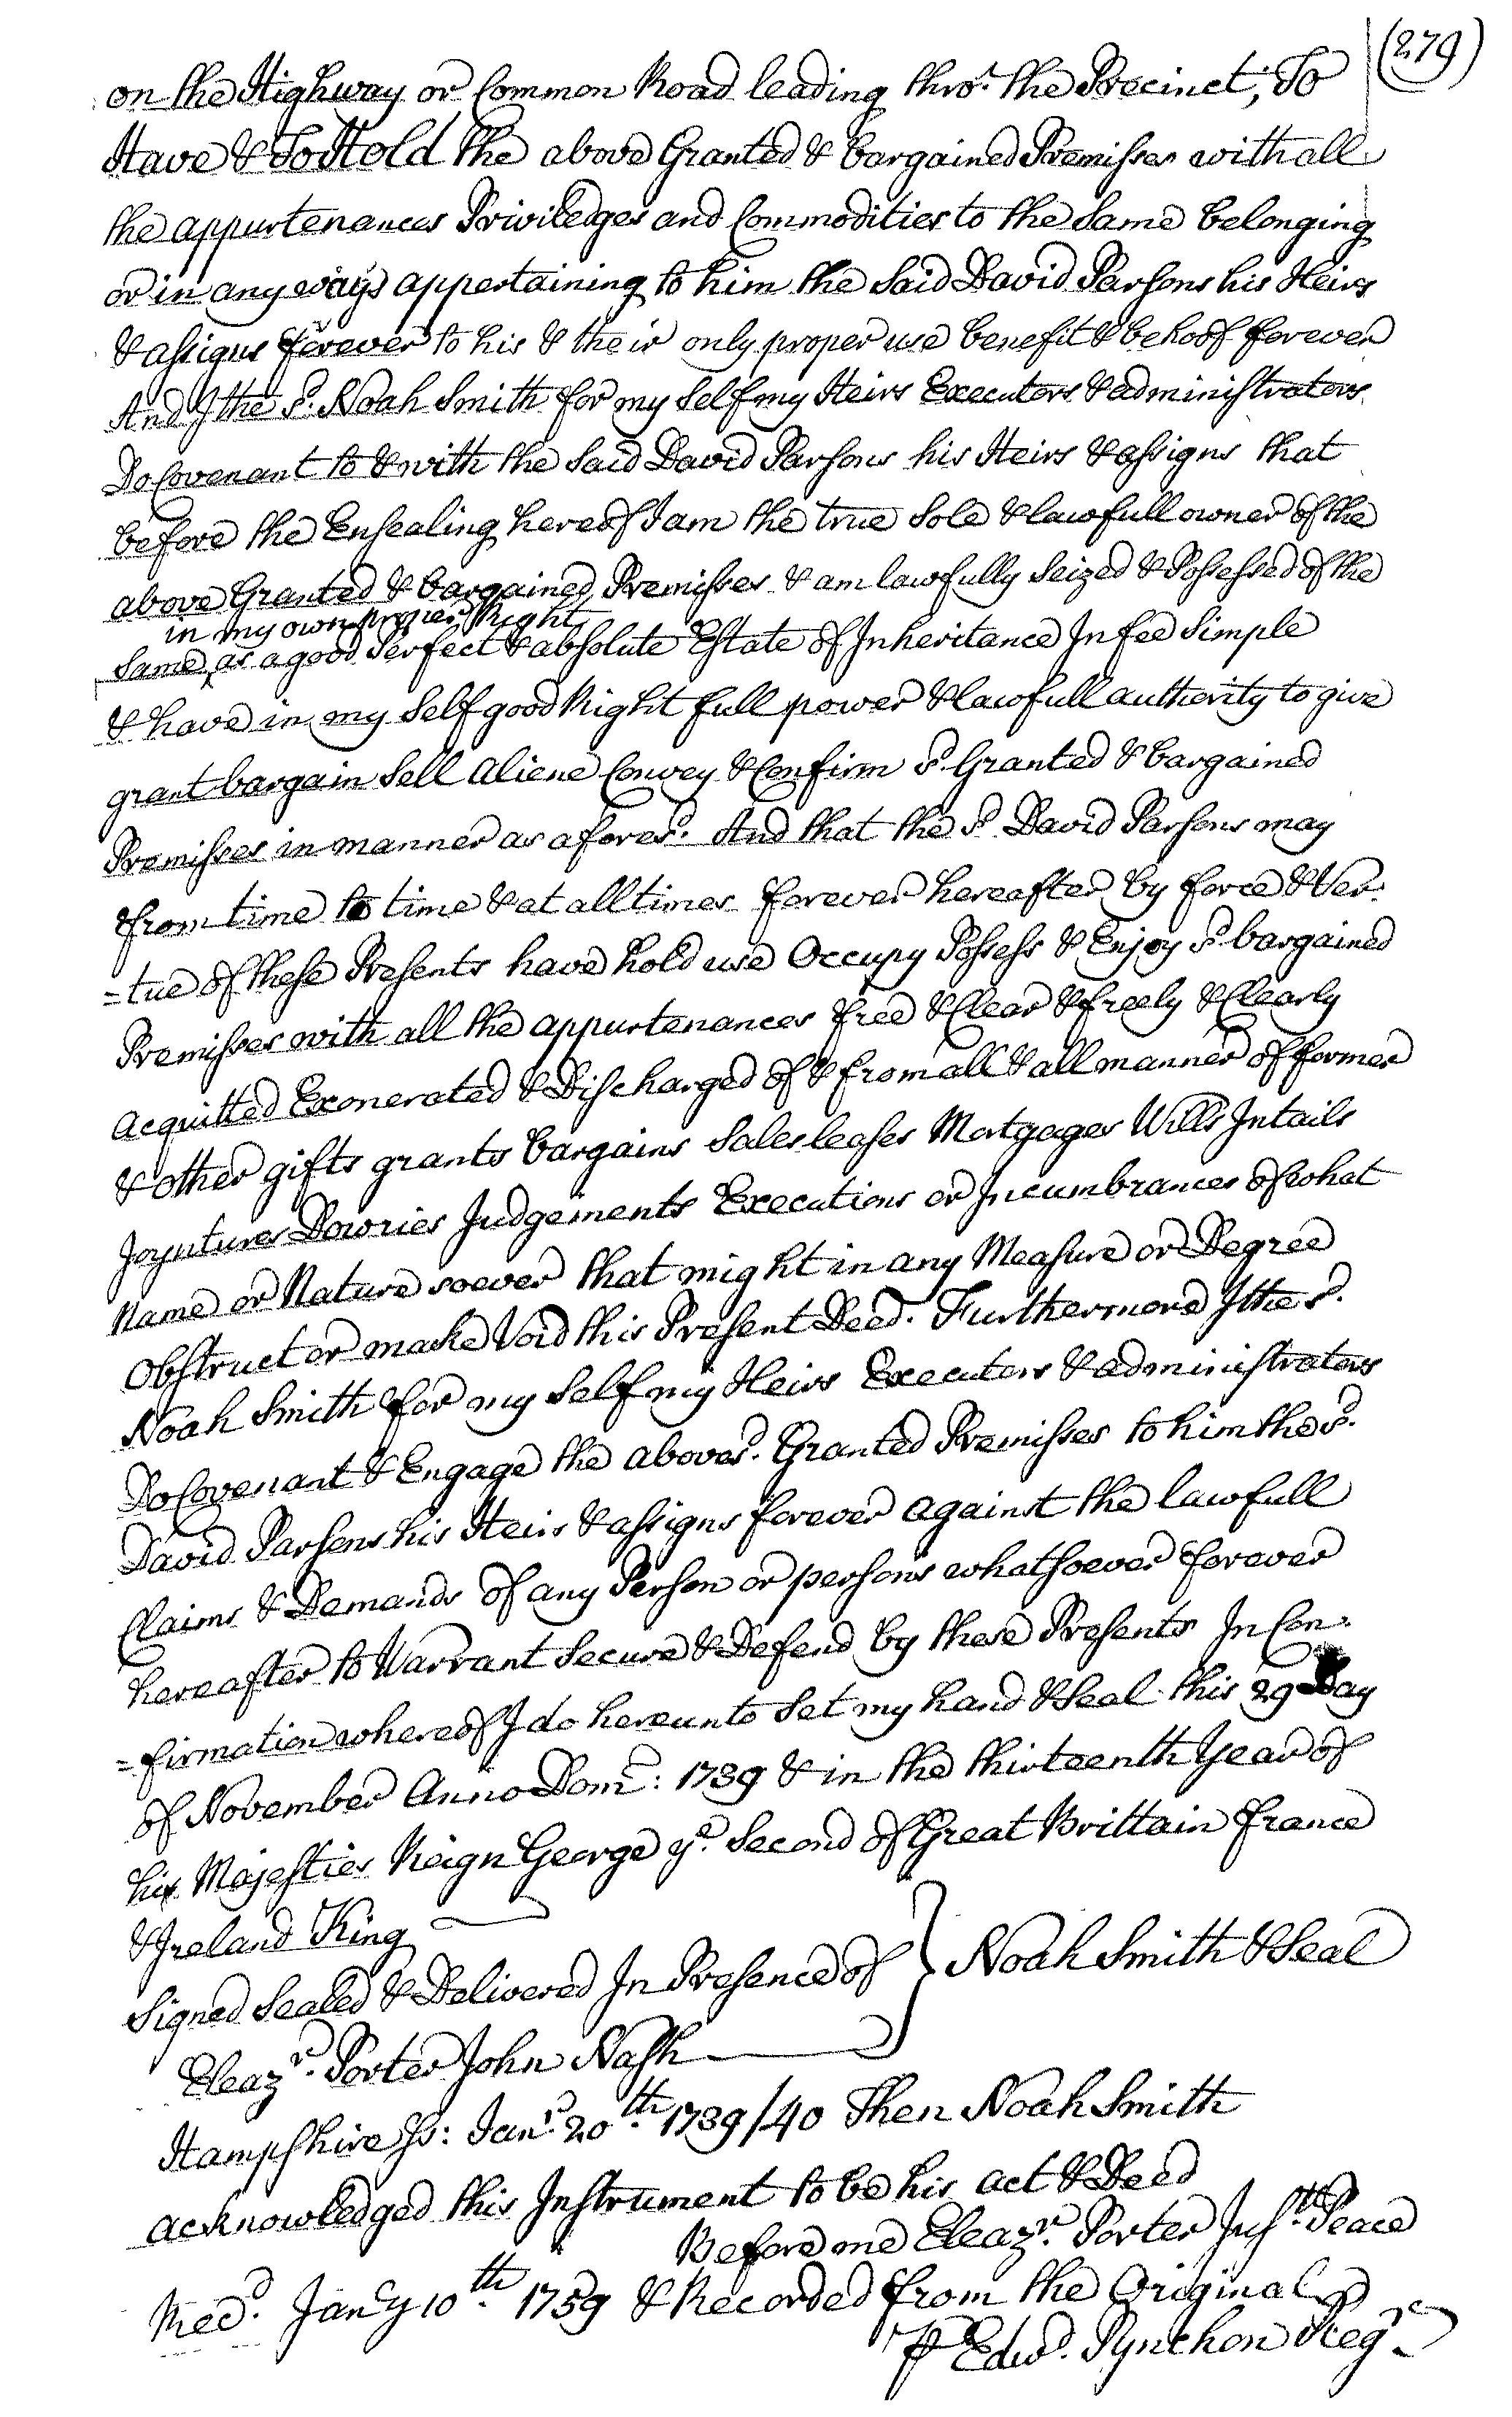 (279)
on the Highway or Common Road leading thro.' the Precinct, To
Have & To Hold the above Granted & bargained Premisses with all
the appurtenances Priviledges and Commodities to the Same belonging
or in any ways appertaining to him the Said David Parsons his Heirs
& assigns forever to his & their only proper use benefit & behoof forever
And I the sd. Noah Smith for my Self my Heirs Executors & administrators
Do Covenant to & with the Said David Parsons his Heirs & assigns that
before the Ensealing hereof I am the true Sole & lawfull owner of the
above Granted & bargained Premisses & am lawfully Seized & Possessed of the
in my own proper Right
Same ^ as a good Perfect & absolute Estate of Inheritance In fee Simple
& have in my Self good Right full power & lawfull authority to give
grant bargain Sell Aliene Convey & Confirm sd. Granted & bargained
Premisses in manner as aforesd. And that the sd. David Parsons may
from time to time & at all times forever hereafter by force & Ver-
=tue of these Presents have hold use Occupy Possess & Enjoy sd. bargained
Premisses with all the appurtenances free & Clear & freely & Clearly
Acquitted Exonerated & Discharged of & from all & all manner of former
& other gifts grants bargains Sales leases Mortgages Wills Intails
Joyntures Dowries Judgements Executions or Incumbrances of what
Name or Nature soever that might in any Measure or Degree
Obstruct or make Void this Present Deed. Furthermore I the sd.
Noah Smith for my Self my Heirs Executors & administrators
Do Covenant & Engage the abovesd. Granted Premisses to him the sd.
David Parsons his Heirs & assigns forever against the lawfull
Claims & Demands of any Person or persons whatsoever forever
hereafter to Warrant Secure & Defend by these Presents In Con-
=firmation whereof I do hereunto Set my hand & Seal this 29 Day
of November Anno Dom: 1739 & in the thirteenth Year of
his Majesties Reign George ye. Second of Great Brittain France
& Ireland King
Signed Sealed & Delivered In Presence of } Noah Smith & Seal
Eleazr. Porter John Nash
Hampshire ss: Janr. 20th. 1739/40 Then Noah Smith
acknowledged this Instrument to be his act & Deed
Before me Eleazr. Porter Just. Peace
Recd. Janry 10th. 1759 & Recorded from the Original
⅌ Edwd. Pynchon Regr.